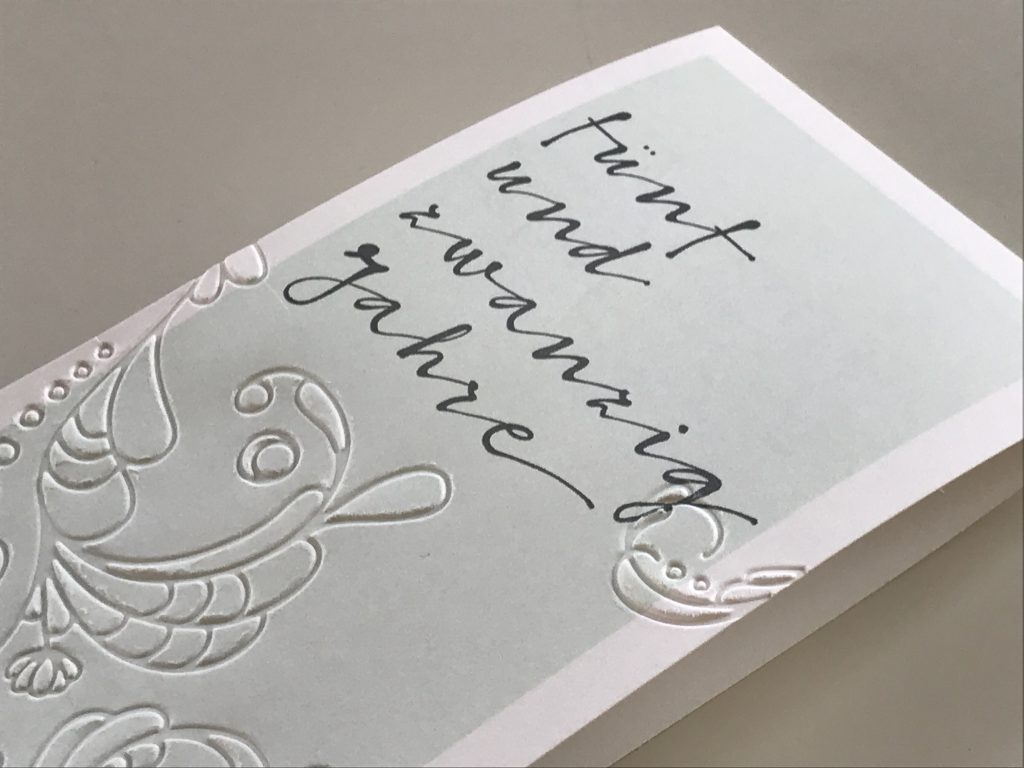 fünf
und
zwanzig
Jahre